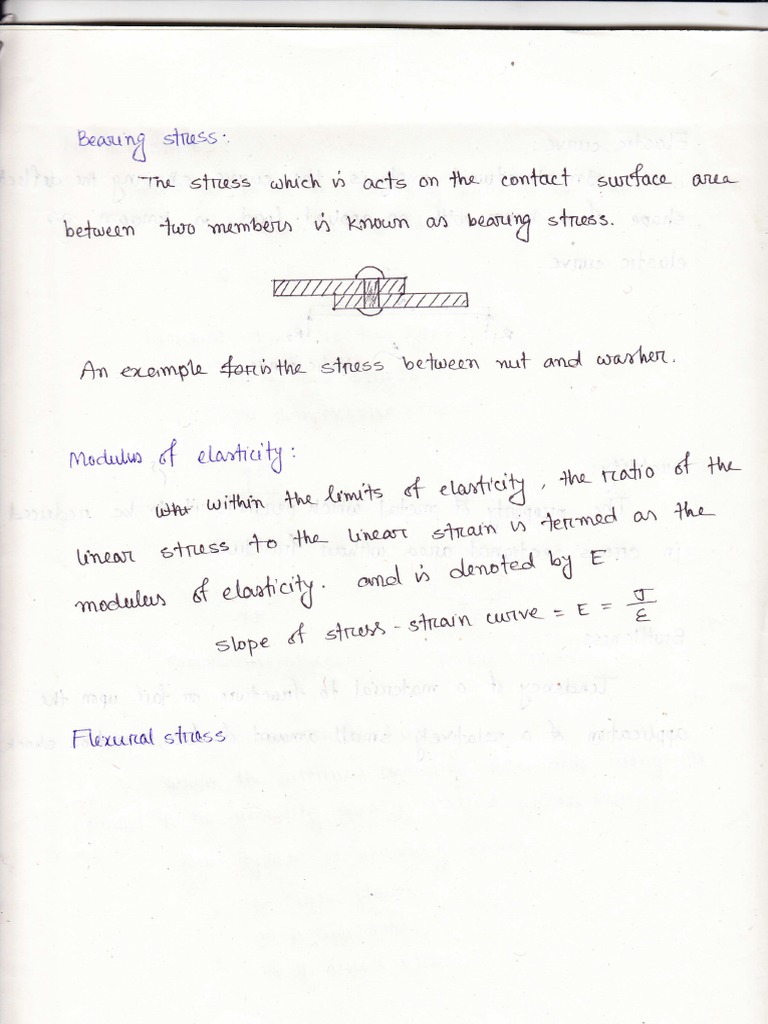 Bearing stress:
The stress which is acts on the contact surface area
between two members is known as bearing stress.
An example for is the stress between nut and washer.
Modulus of elasticity:
whi within the limits of elasticity, the ratio of the
linear stress to the linear strain is termed as the
modulus of elasticity. and is denoted by E.
slope of stress-strain curve = E = σ/ε
Flexural stress